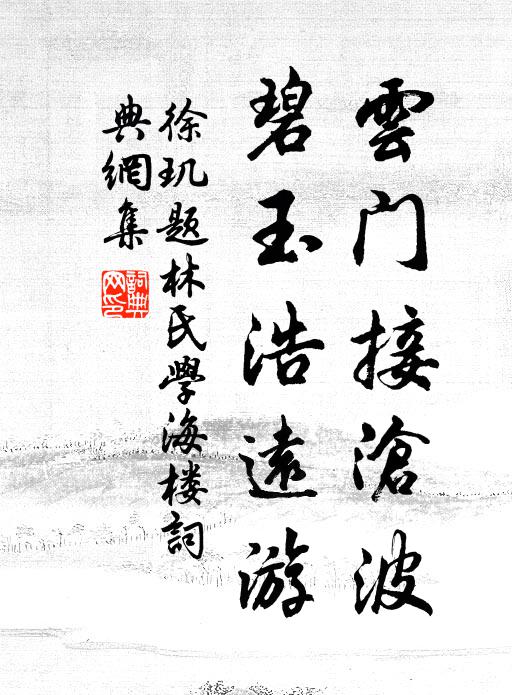 雲门接滄波
碧玉浩遠游
徐玑题林氏學海楼詞
典網集
詞典網印